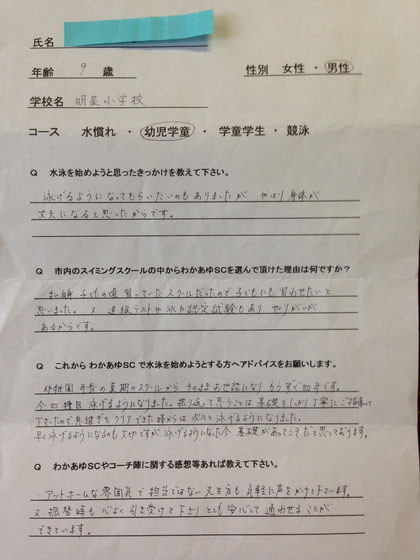 氏名
年齢 9 歳 性別 女性・男性
学校名 明星小学校
コース 水慣れ・幼児学童・学童学生・競泳
Q 水泳を始めようと思ったきっかけを教えて下さい。
泳げるようになってもらいたいのもありましたが、やはり身体が
丈夫になると思ったからです。
Q 市内のスイミングスクールの中からわかあゆSCを選んで頂けた理由は何ですか？
私自身 子どもの頃 習っていたスクールだったので子どもにも習わせたいと
思いました。又、進級テストや泳力認定試験もあり やりがいが
あるからです。
Q これから わかあゆSCで水泳を始めようとする方へアドバイスをお願いします。
幼稚園 年長の夏期のスクールから そのままお世話になり もうすぐ四年です。
今四種目泳げるようになりました。振り返って思うことは 基礎をしっかり丁寧にご指導して
下さったので 息継ぎをクリアできた時からは 次々と泳げるようになりました。
早く泳げるようになるのも大切ですが 泳げるようになった今 基礎があってこそだと思っております。
Q わかあゆSCやコーチ陣に関する感想等あれば教えて下さい。
アットホームな雰囲気で 担当ではない先生方も 気軽に声をかけて下さいます。
又、振替時も 心よく引き受けて下さり とても安心して通わせることが
できています。